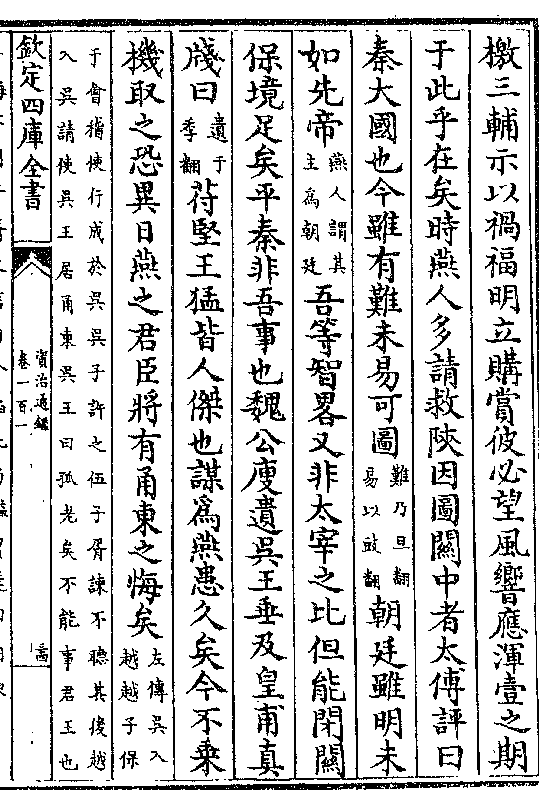 檄三輔示以禍福明立購賞彼必望風響應渾壹之期
于此乎在矣時燕人多請救陜因圖關中者太傅評曰
秦大國也今雖有難未易可圖難乃旦翻易以豉翻朝廷雖明未
如先帝燕人謂其主為朝廷吾等智畧又非太宰之比但能閉關
保境足矣平秦非吾事也魏公廋遺吳王垂及皇甫真
牋曰遺于季翻苻堅王猛皆人傑也謀為燕患久矣今不乗
機取之恐異日燕之君臣將有甬東之悔矣左傳吳入越越子保
于會稽使行成於吳吳子許之伍子胥諫不聽其後越
入吳請使吳王居甬東吳王曰孤老矣不能事君王也
欽定四庫全書
資治通鑑
卷一百一